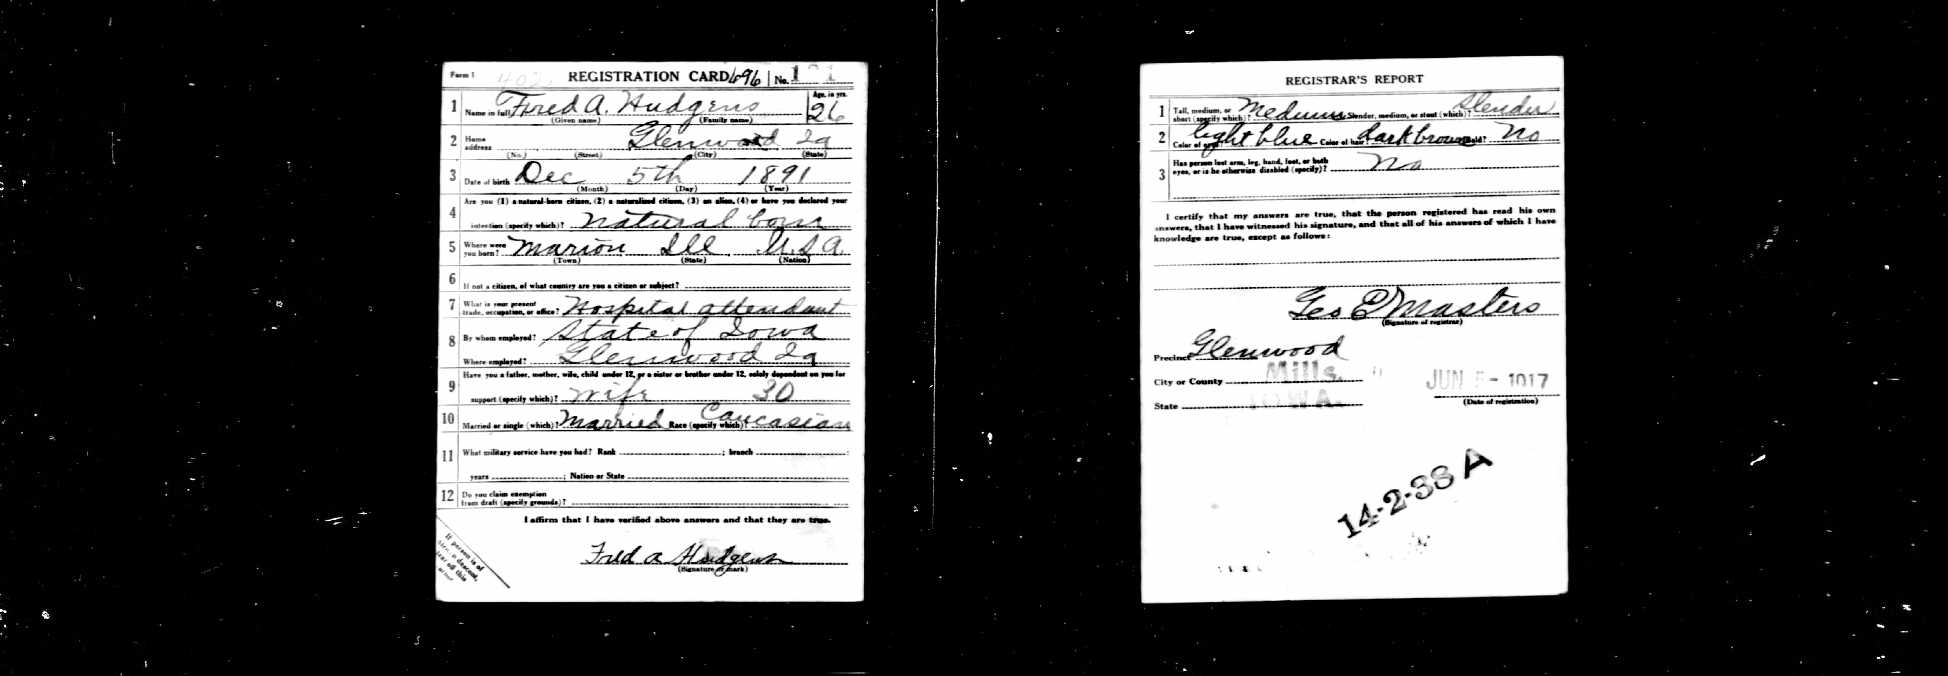 Form 1 REGISTRATION CARD 696 No.
1 Name in full Fred A. Hudgens Age, in yrs. 26
(Given name) (Family name)
2 Home address Glenwood Ia
(No.) (Street) (City) (State)
3 Date of birth Dec 5th 1891
(Month) (Day) (Year)
4 Are you (1) a natural-born citizen, (2) a naturalized citizen, (3) an alien, (4) or have you declared your
intention (specify which)? natural born
5 Where were you born? Marion Ill U.S.A.
(Town) (State) (Nation)
6 If not a citizen, of what country are you a citizen or subject?
7 What is your present trade, occupation, or office? Hospital attendant
8 By whom employed? State of Iowa
Where employed? Glenwood Ia
9 Have you a father, mother, wife, child under 12, or a sister or brother under 12, solely dependent on you for
support (specify which)? wife 30
10 Married or single (which)? Married Race (specify which)? Caucasian
11 What military service have you had? Rank ; branch ;
years ; Nation or State
12 Do you claim exemption from draft (specify grounds)?
I affirm that I have verified above answers and that they are true.
Fred A Hudgens
(Signature or mark)
If person is of
descent,
off this
corner
REGISTRAR'S REPORT
1 Tall, medium, or short (specify which)? Medium Slender, medium, or stout (which)? Slender
2 Color of eyes? light blue Color of hair? dark brown Bald? No
3 Has person lost arm, leg, hand, foot, or both eyes, or is he otherwise disabled (specify)? No
I certify that my answers are true, that the person registered has read his own
answers, that I have witnessed his signature, and that all of his answers of which I have
knowledge are true, except as follows:
Geo E Masters
(Signature of registrar)
Precinct Glenwood
City or County Mills.
State IOWA.
JUN 5 - 1917
(Date of registration)
14-2-38 A